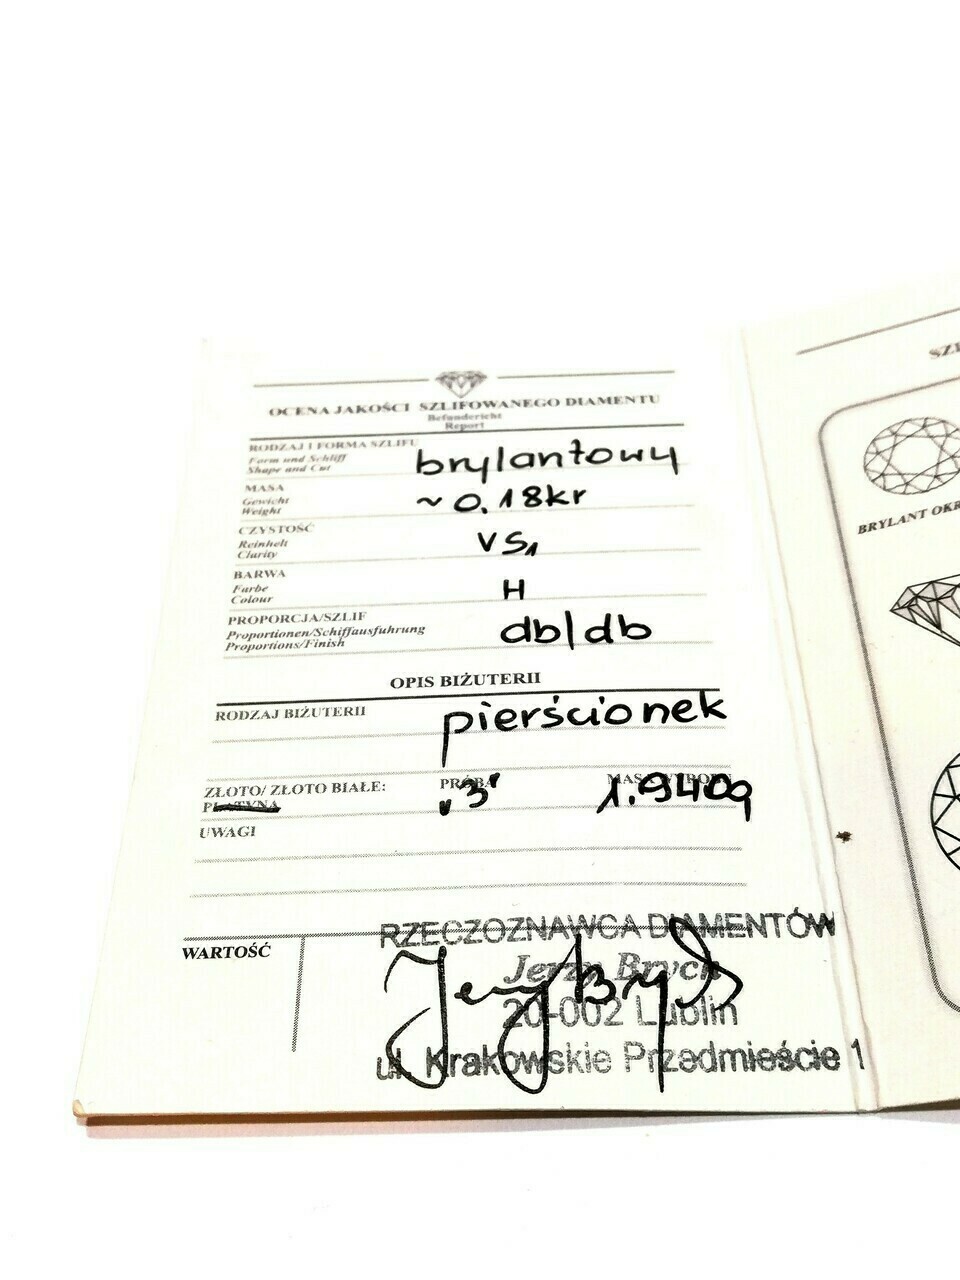 OCENA JAKOŚCI SZLIFOWANEGO DIAMENTU
Befundericht
Report
RODZAJ I FORMA SZLIFU
Form und Schliff
Shape and Cut
brylantowy
MASA
Gewicht
Weight
~0.18kr
CZYSTOŚĆ
Reinheit
Clarity
VS1
BARWA
Farbe
Colour
H
PROPORCJA/SZLIF
Proportionen/Schiffausfuhrung
Proportions/Finish
db/db
OPIS BIŻUTERII
RODZAJ BIŻUTERII
pierścionek
ZŁOTO/ ZŁOTO BIAŁE:
PLATYNA
PRÓBA
„3"
MASA WYROBU
1.940g
UWAGI
WARTOŚĆ
RZECZOZNAWCA DIAMENTÓW
Jerzy Brych
20-002 Lublin
ul. Krakowskie Przedmieście 1
BRYLANT OKR